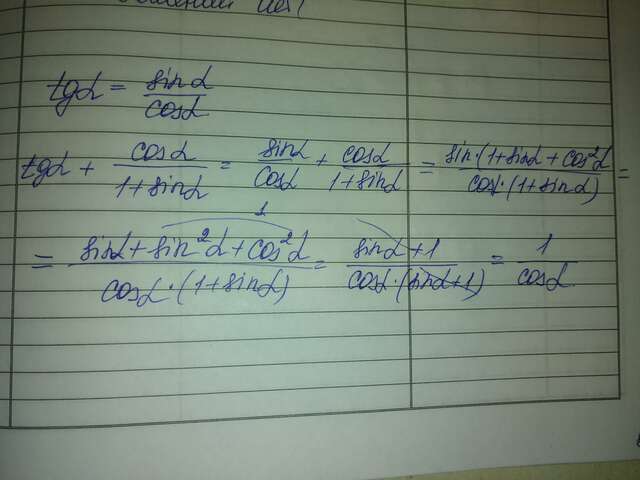 tgα = sinα/cosα
tgα + cosα/(1+sinα) = sinα/cosα + cosα/(1+sinα) = sin·(1+sinα + cos²α/cos·(1+sinα) =
1
= (sinα+sin²α+cos²α)/(cosα·(1+sinα)) = (sinα+1)/(cosα·(sinα+1)) = 1/cosα